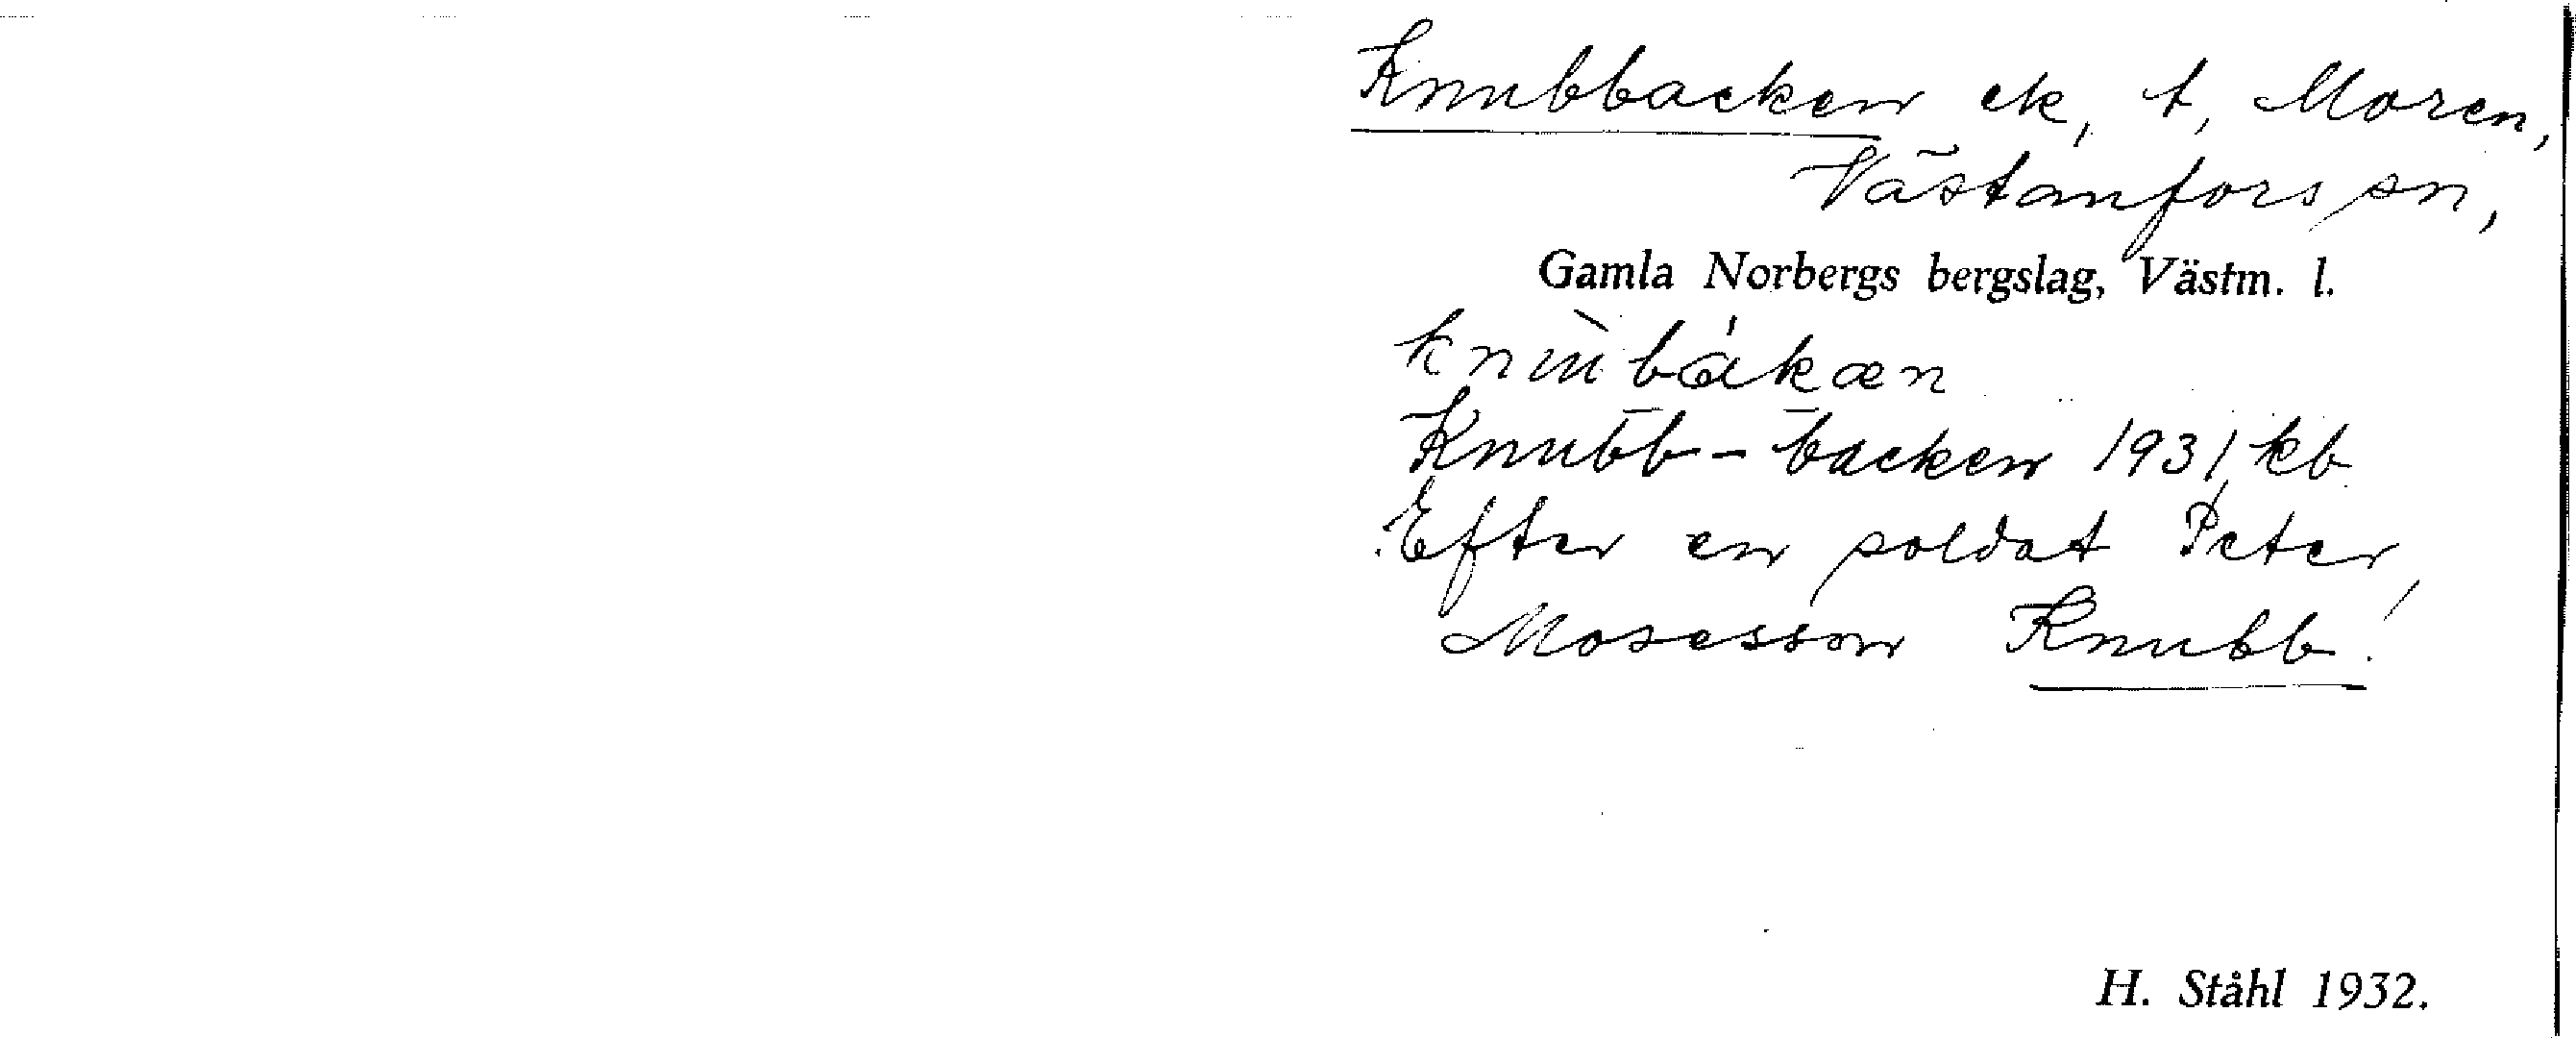 Knubbacken ek, t, Moren,
Västanfors sn,
Gamla Norbergs bergslag, Västm. l.
Knubb-backen 1931 kb
Efter en soldat Peter
Mosesson Knubb!
H. Ståhl 1932.